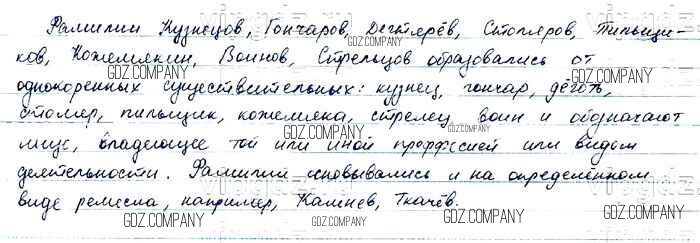 Фамилии Кузнецов, Гончаров, Дегтярёв, Столяров, Пильщи-
ков, Кожемякин, Воинов, Стрельцов образовались от
однокоренных существительных: кузнец, гончар, дёготь,
столяр, пильщик, кожемяка, стрелец, воин и обозначают
лицо, владеющее той или иной профессией или видом
деятельности. Фамилии основывались и на определённом
виде ремесла, например, Камнев, Ткачёв.
GDZ.COMPANY